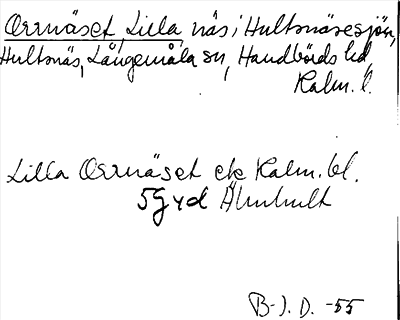 Orrnäset, Lilla näs i Hultsnäsesjön,
Hultsnäs, Långemåla sn, Handbörds hd,
Kalm. l.
Lilla Orrnäset ek Kalm. bl.
5G vd Älmhult
B-J. D. -55